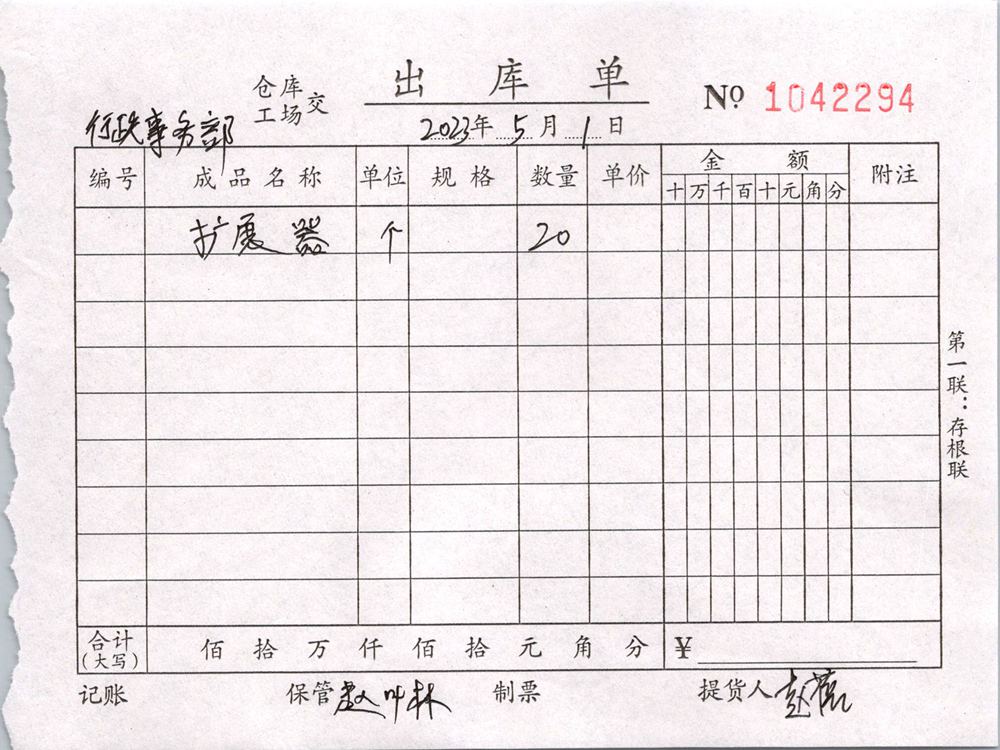 出 库 单
仓库
工场交
№ 1042294
行政事务部
2023年 5 月 1 日
编号 成品名称 单位 规格 数量 单价 金额 附注
十 万 千 百 十 元 角 分
扩展器 个 20
第一联：存根联
合计 佰 拾 万 仟 佰 拾 元 角 分 ¥
(大写)
记账 保管 赵叶林 制票 提货人 赵